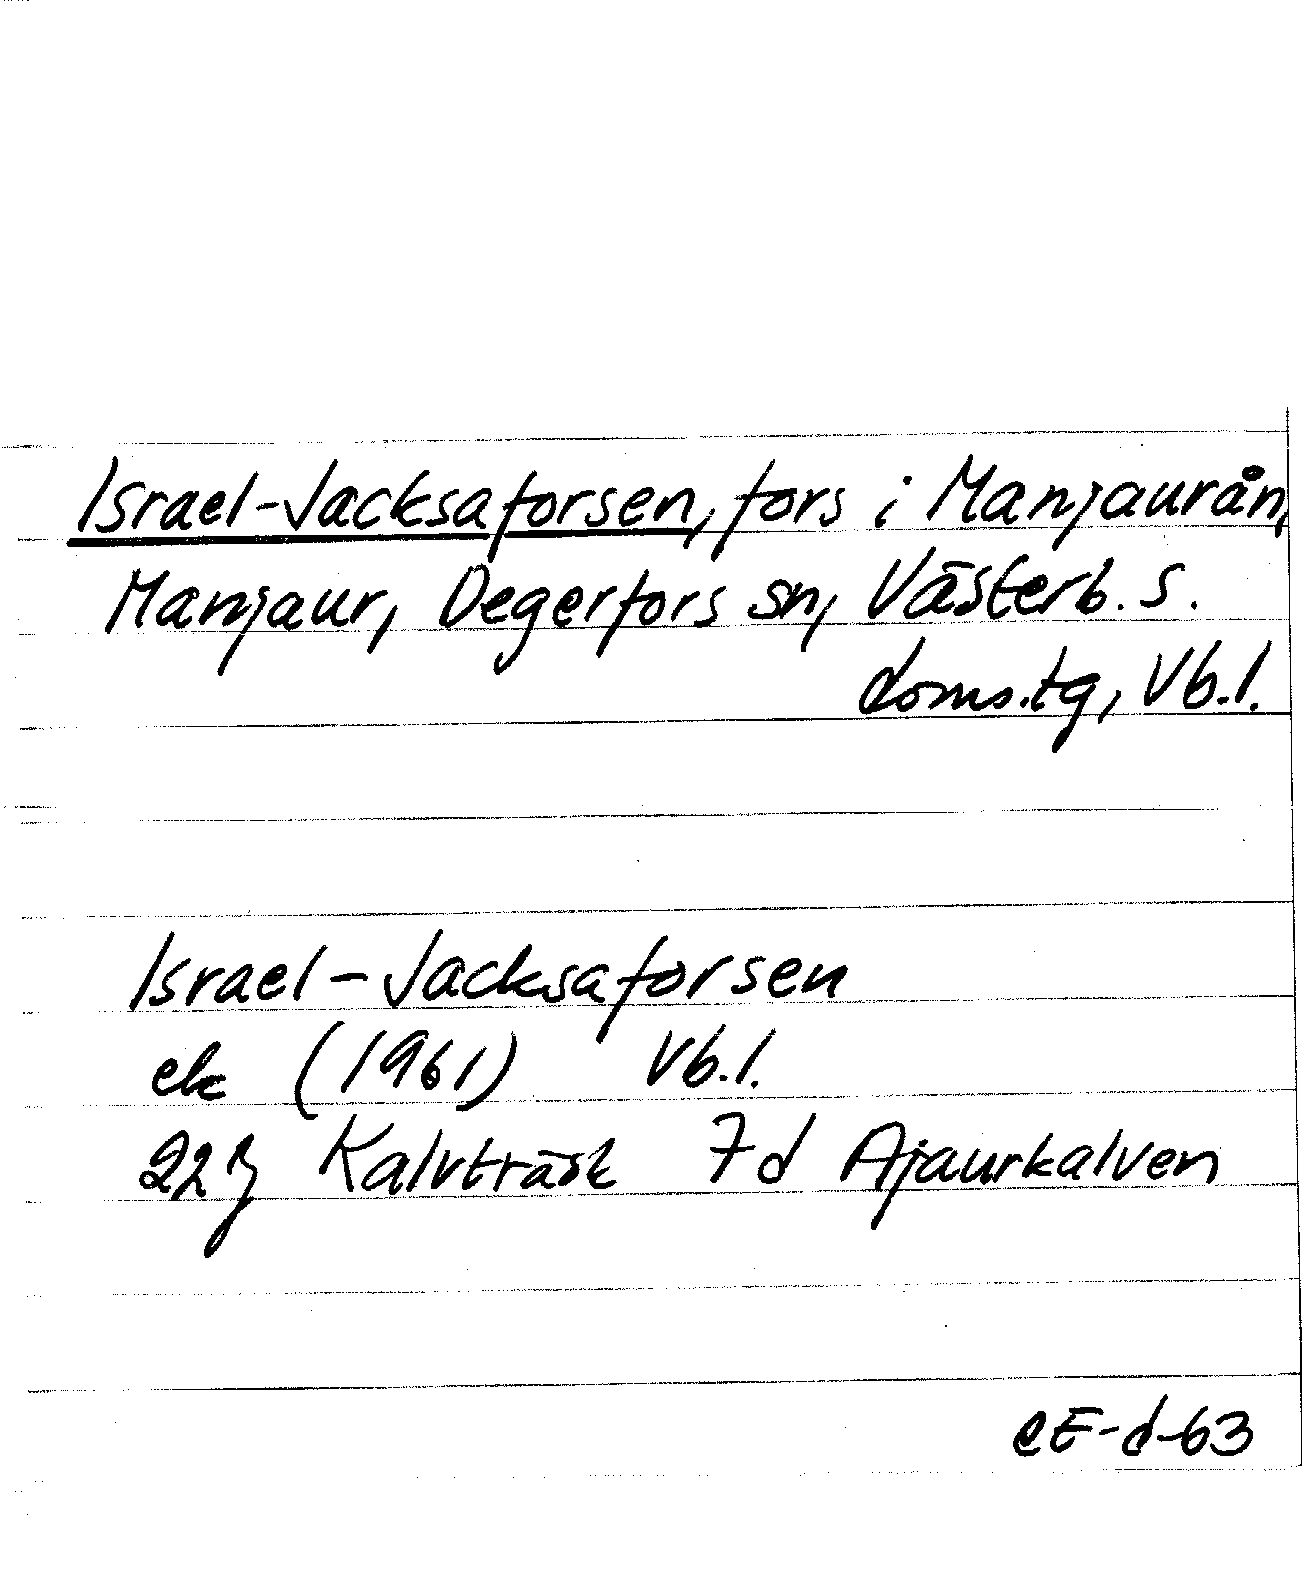 Israel-Jacksaforsen, fors i Manjaurån,
Manjaur, Degerfors sn, Västerb. s.
doms.tg, Vb.l.
Israel-Jacksaforsen
ek (1961) Vb.l.
22J Kalvträsk 7d Ajaurkalven
CE-d-63